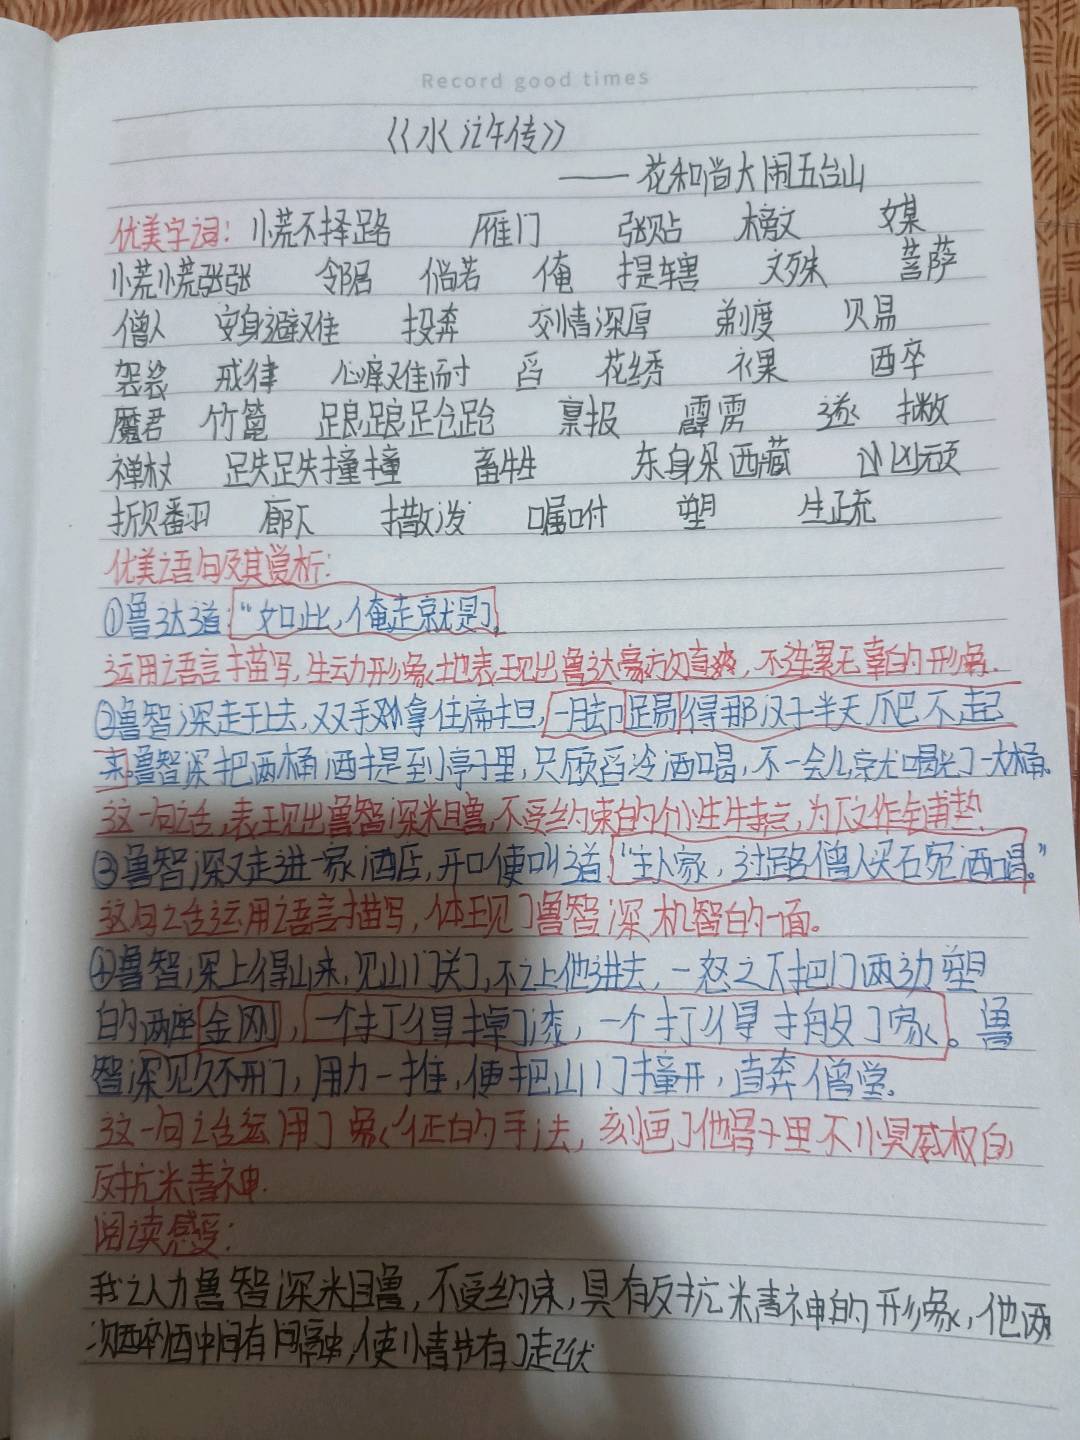 Record good times
《水浒传》
——花和尚大闹五台山
优美字词：慌不择路 雁门 张贴 榜文 媒
慌慌张张 邻居 倘若 俺 提辖 文殊 菩萨
僧人 安身避难 投奔 交情深厚 剃度 贸易
袈裟 戒律 心痒难耐 舀 花绣 裸 酉卒
魔君 竹篦 踉踉跄跄 禀报 霹雳 遂 撇
禅杖 跌跌撞撞 畜牲 东身朵西藏 凶顽
掀翻 廊下 撒泼 嘱咐 塑 生疏
优美语句及其赏析：
①鲁达道：“如此，俺走就是了。
运用语言描写，生动形象地表现出鲁达豪放直爽，不连累无辜的形象.
②鲁智深走上去，双手拿住扁担，一脚踢得那汉子半天爬不起
来。鲁智深把两桶酒提到亭子里，只顾舀冷酒喝，不一会儿就喝光了一大桶。
这一句话，表现出鲁智深粗鲁，不受约束的个性特点，为下文作铺垫.
③鲁智深又走进一家酒店，开口便叫道“主人家，过路僧人买碗酒喝。”
这句话运用语言描写，体现了鲁智深机智的一面。
④鲁智深上得山来，见山门关了，不让他进去，一怒之下把门两边塑
的两座金刚，一个打得掉了漆，一个打得搬了家。鲁
智深见久不开门，用力一推，便把山门撞开，直奔僧堂。
这一句话运用了象征的手法，刻画了他骨子里不惧威权的
反抗精神.
阅读感受：
我认为鲁智深粗鲁，不受约束，具有反抗精神的形象，他两
次醉酒中间有间隔，使情节有了起伏